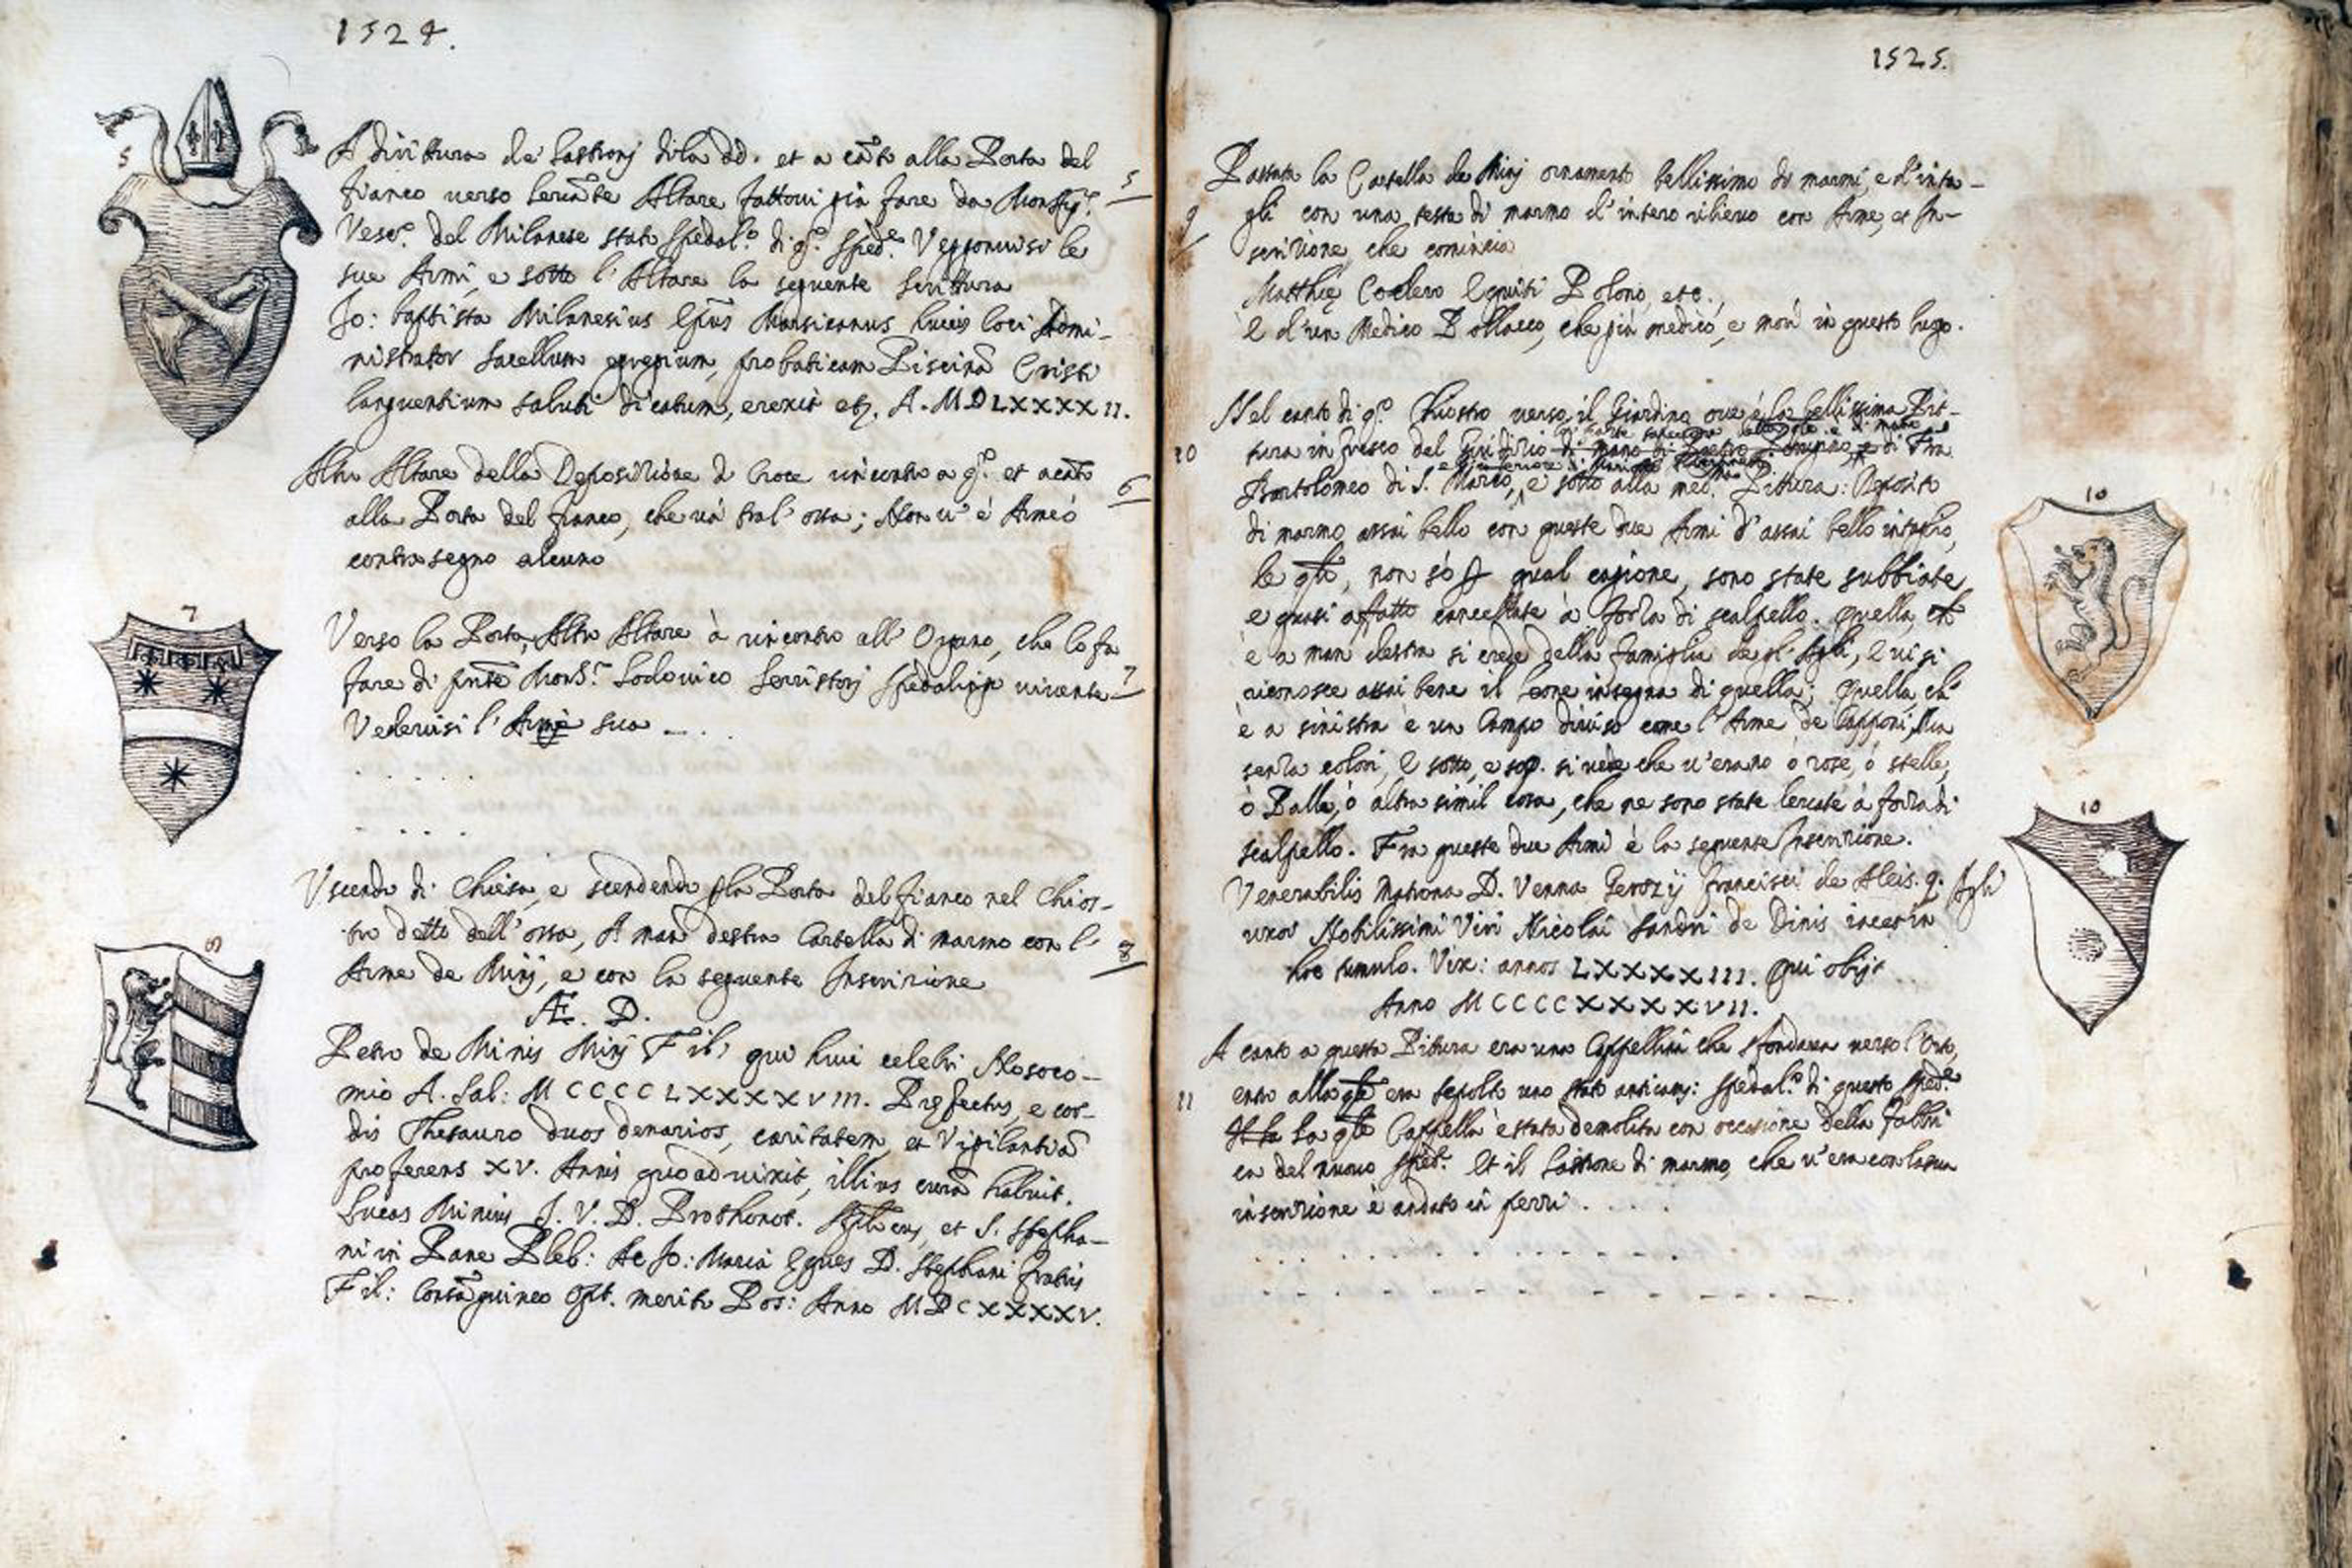 1524.
5
A dirittura de Lastronj di là dd. et a cāto alla Porta del
fianco verso levāte Altare fattovi già fare da Monsigr.
Vesco. del Milanese stato Spedalo. di qo. Spede. Veggonvisi le
sue Armi, e sotto l'Altare la seguente Scrittura
Jo: baptista Milanesius Epūs Marsicanus huius loci Admi-
nistrator Sacellum egregium, probaticam Piscinā Cristi
languentium saluti dicatum, erexit etc. A. MDLXXXXII.
5
Altro Altare della Depositione di Croce rincontro a qo. et acāto
alla Porta del fianco, che và tral'ossa; Non v'è Arme ò
contrasegno alcuno
6
7
Verso la Porta, Altro Altare à rincontro all'Organo, che lo fa
fare di pnte Monsr. Lodovico Serristorj Spedalingo vivente
Vedervisi l'Arme sua - . .
7
Uscendo di Chiesa, e scendendo p la Porta del fianco nel Chios-
tro detto dell'ossa, A man destra Cartella di marmo con l'
Arme de Minj, e con la seguente Inscrizione
8
8
Æ. D.
Petro de Minis Minj Fil' qui huic celebri Nosoco-
mio A. Sal: MCCCCLXXXXVIII. Prefectus, e cor-
dis Thesauro duos denarios, caritatem, et Vigilantiā
proferens XV. Annis quoad vixit, illius curā habuit.
Lucas Minius J. V. D. Prothonot. et S. Stepha-
ni in Pane Pleb: Ac Jo: Maria Eques D. Stephani fratris
Fil: Consāguineo Opt. merito Pos: Anno MDCXXXXV.
1525.
Passata la Cartella de Minj ornamento bellissimo di marmi, e d'inta-
gli con una testa di marmo d'intero rilievo con Arme, et In-
scrizione, che comincia
9
Matthię Coclero Equiti Polono, etc.
E d'un Medico Pollacco, che già medicò, e morì in questo luogo.
Nel canto di qo. Chiostro verso il Giardino ove è la bellissima Pit-
tura in fresco del Giudizio di mano di di Fra
10
Bartolomeo di S. Marco, e sotto alla meda. Pittura: Deposito
di marmo assai bello con queste due Armi d'assai bello intaglio,
le qli, non sò p qual cagione, sono state subbiate
e quasi affatto cancellate à forza di scalpello. Quella, ch'
è a man destra si crede della famiglia degl'Agli, e vi si
riconosce assai bene il Leone insegna di quella; Quella, ch'
è a sinistra è un Campo diviso come l'Arme de Capponi, Ma
senza colori, e sotto, e sop. si vede che v'erano ò rose, ò stelle,
ò Palle, ò altra simil cosa, che ne sono state levate à forza di
scalpello. Fra queste due Armi è la seguente Inscrizione.
10
10
Venerabilis Matrona D. Venna Gerozij Francisci de Aleis. q. Agli
uxor Nobilissimi Viri Nicolai Sandri de Dinis iacet in
hoc tumulo. Vix: annos LXXXXIII. Qui obijt
Anno MCCCCXXXXVII.
A canto a questa Pittura era una Cappellina che sfondava verso l'Orto,
entro alla qle era sepolto uno stato anticamj: Spedalo. di questo Spede.
11
La qle Cappella è stata demolita con occasione della fabbri
ca del nuovo Sped. Et il Lastrone di marmo, che v'era con la sua
inscrizione è andato in perri . . . .